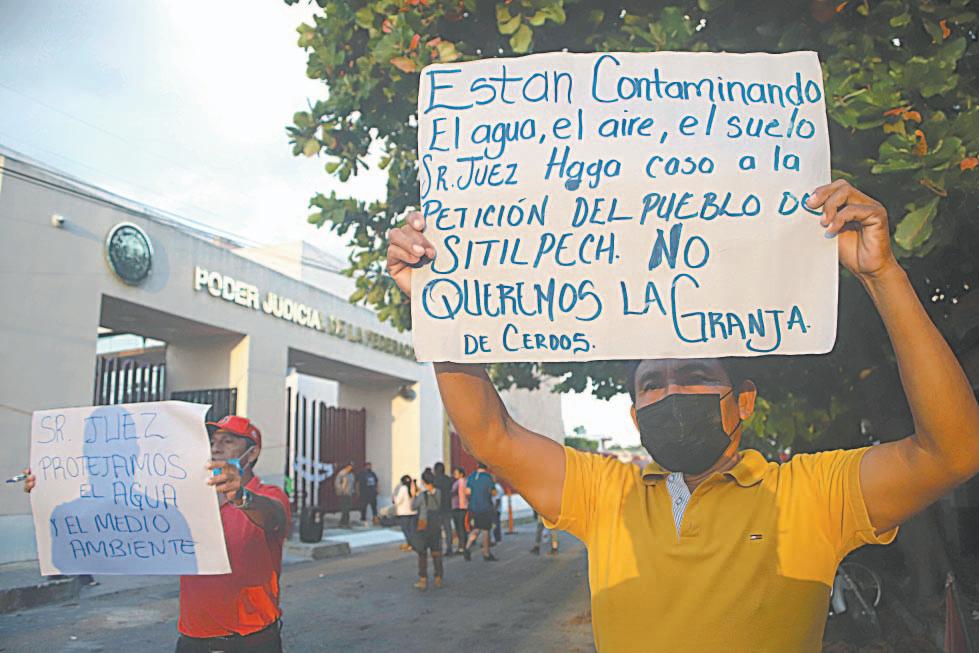 ESTAN CONTAMINANDO
El agua, el aire, el suelo
SR. JUEZ Haga caso a la
PETICIÓN DEL PUEBLO DE
SITILPECH. NO
QUEREMOS LA GRANJA.
DE CERDOS.
PODER JUDICIA DE LA FEDERAC
SR. JUEZ
PROTEJAMOS
EL AGUA
Y EL MEDIO
AMBIENTE